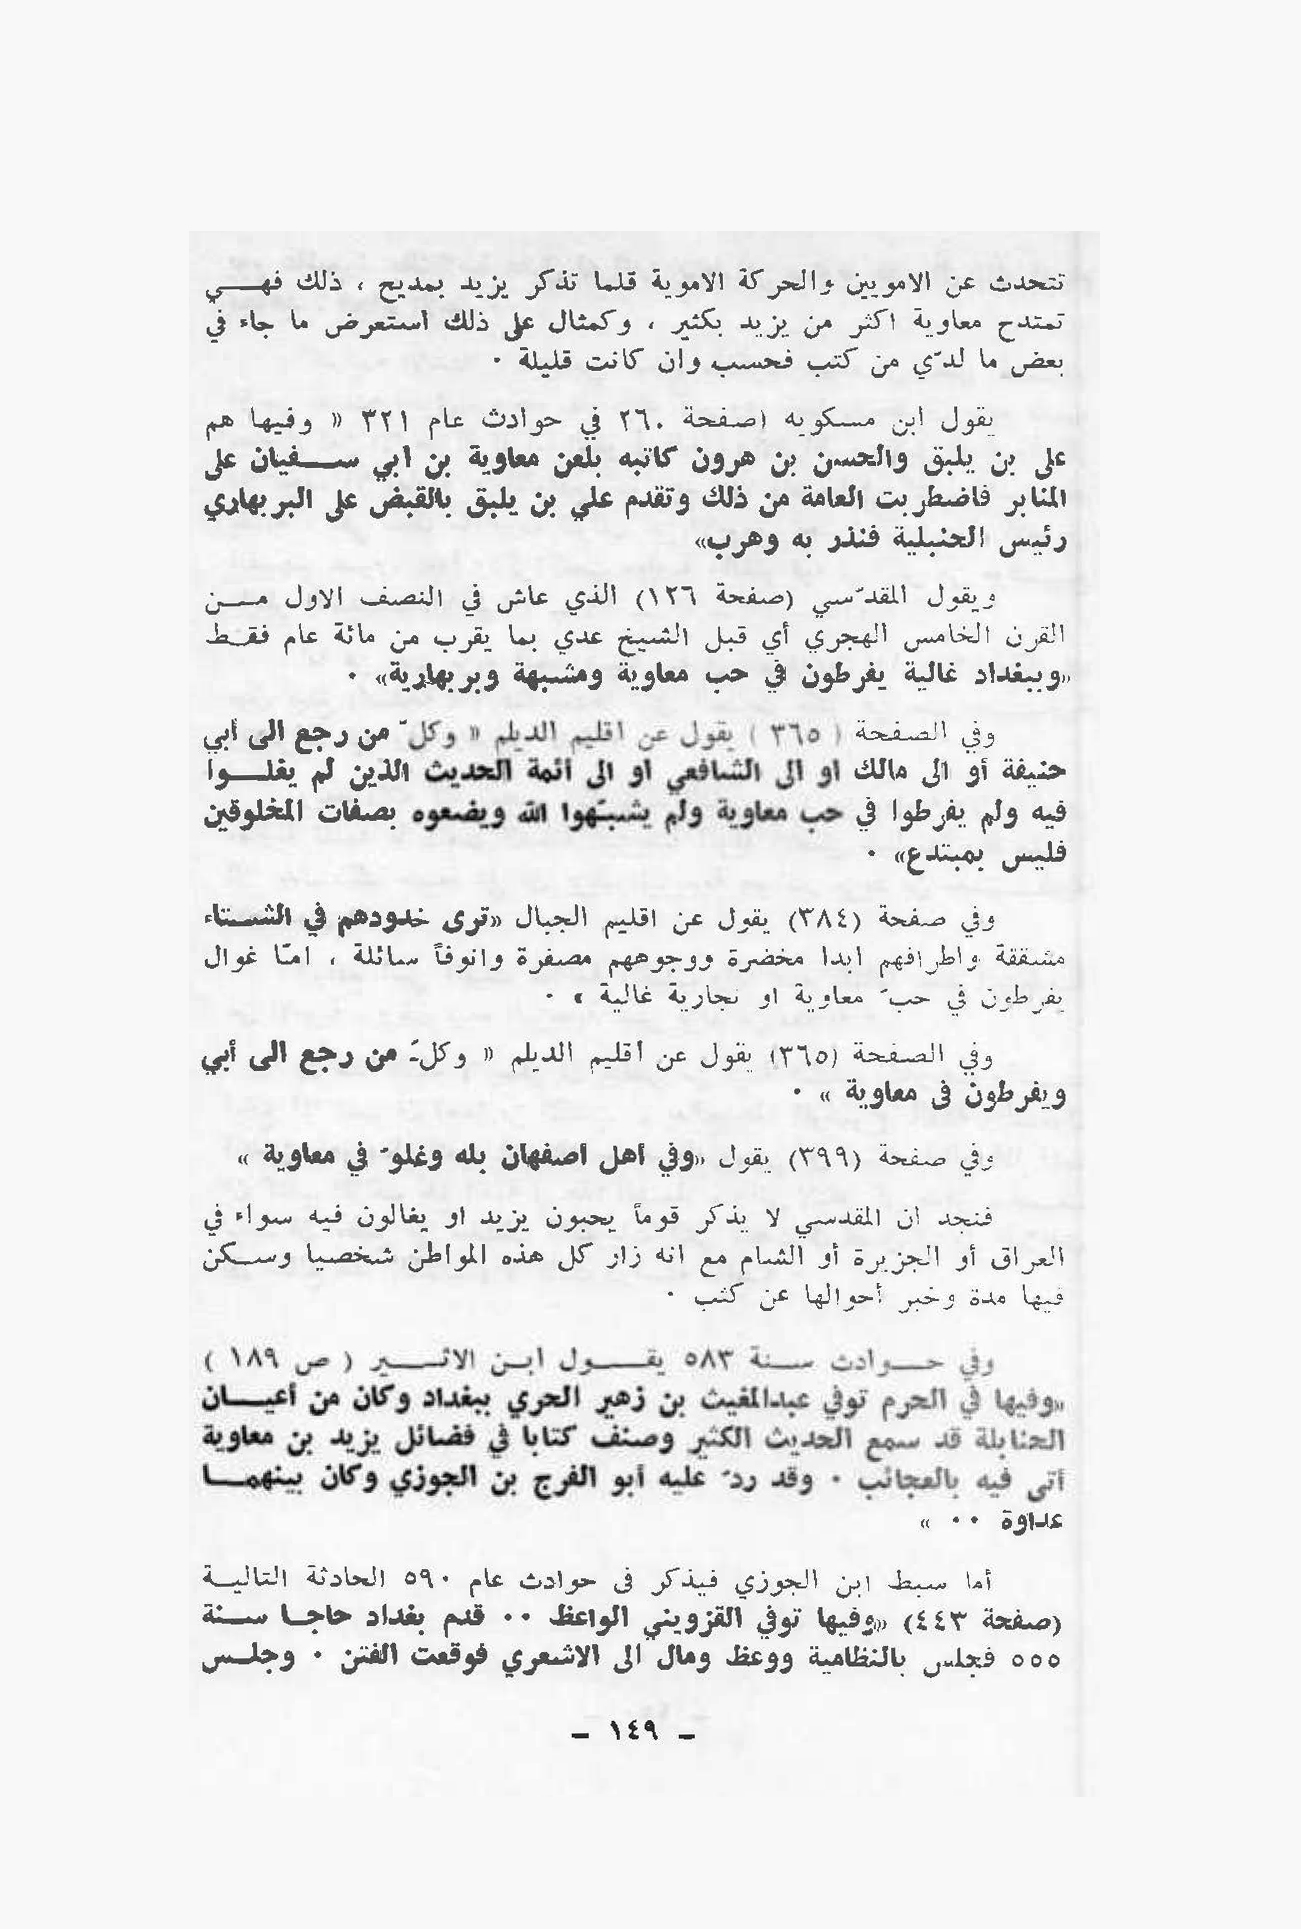 تتحدث عن الامويين والحركة الاموية قلما تذكر يزيد بمديح ، ذلك فهي
تمتدح معاوية اكثر من يزيد بكثير ، وكمثال على ذلك استعرض ما جاء في
بعض ما لديّ من كتب فحسب وان كانت قليلة ٠
يقول ابن مسكويه (صفحة ٢٦٠ في حوادث عام ٣٢١ « وفيها هم
على بن يلبق والحسن بن هرون كاتبه بلعن معاوية بن أبي سفيان على
المنابر فاضطربت العامة من ذلك وتقدم علي بن يلبق بالقبض على البربهاري
رئيس الحنبلية فنذر به وهرب»
ويقول المقدّسي (صفحة ١٢٦) الذي عاش في النصف الاول من
القرن الخامس الهجري أي قبل الشيخ عدي بما يقرب من مائة عام فقط
«وببغداد غالية يفرطون في حب معاوية ومشبهة وبربهارية» ٠
وفي الصفحة ( ٣٦٥ ) يقول عن اقليم الديلم « وكلّ من رجع الى أبي
حنيفة أو الى مالك او الى الشافعي او الى أئمة الحديث الذين لم يغلوا
فيه ولم يفرطوا في حب معاوية ولم يشبّهوا الله ويضعوه بصفات المخلوقين
فليس بمبتدع» ٠
وفي صفحة (٣٨٤) يقول عن اقليم الجبال «ترى خدودهم في الشتاء
مشققة واطرافهم ابدا مخضرة ووجوههم مصفرة وانوفاً سائلة ، امّا غوال
يفرطون في حبّ معاوية او نجارية غالية » ٠
وفي الصفحة (٣٦٥) يقول عن أقليم الديلم « وكلّ من رجع الى أبي
ويفرطون فى معاوية » ٠
وفي صفحة (٣٩٩) يقول «وفي أهل اصفهان بله وغلوّ في معاوية »
فنجد ان المقدسي لا يذكر قوماً يحبون يزيد او يغالون فيه سواء في
العراق أو الجزيرة أو الشام مع انه زار كل هذه المواطن شخصيا وسكن
فيها مدة وخبر أحوالها عن كثب ٠
وفي حوادث سنة ٥٨٣ يقول ابن الاثير ( ص ١٨٩ )
«وفيها في الحرم توفي عبدالمغيث بن زهير الحري ببغداد وكان من أعيان
الحنابلة قد سمع الحديث الكثير وصنف كتابا في فضائل يزيد بن معاوية
أتى فيه بالعجائب ٠ وقد ردّ عليه أبو الفرج بن الجوزي وكان بينهما
عداوة ٠٠ »
أما سبط ابن الجوزي فيذكر فى حوادث عام ٥٩٠ الحادثة التالية
(صفحة ٤٤٣) «وفيها توفي القزويني الواعظ ٠٠ قدم بغداد حاجا سنة
٥٥٥ فجلس بالنظامية ووعظ ومال الى الاشعري فوقعت الفتن ٠ وجلس
– ١٤٩ –